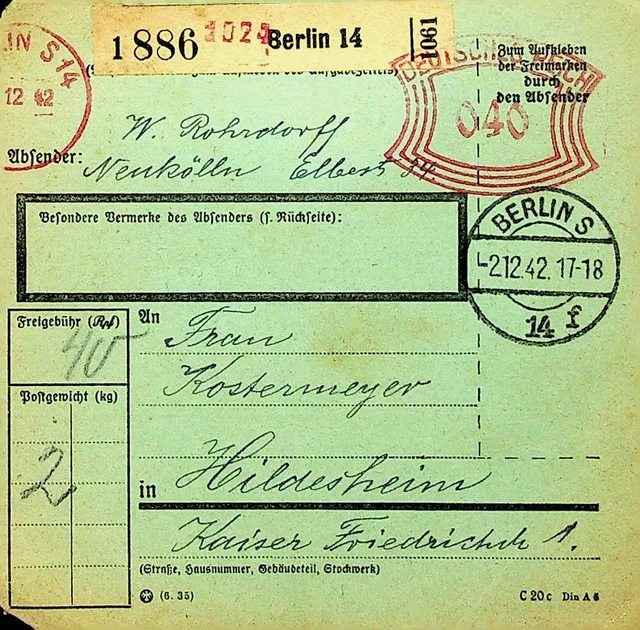 1 886
1024
Berlin 14
1061
LIN S 14
12 42
DEUTSCHES REICH
040
Zum Aufkleben
der Freimarken
durch
den Absender
W. Rohrdorff
Absender: Neukölln Elbestr 54.
Besondere Vermerke des Absenders (s. Rückseite):
BERLIN S
-2.12.42.17-18
14 f
Freigebühr (Rpf)
40
Postgewicht (kg)
2
An Frau
Kostermeyer
in Hildesheim
Kaiser Friedrichch 1.
(Straße, Hausnummer, Gebäudeteil, Stockwerk)
(6. 35)
C 20c Din A 5